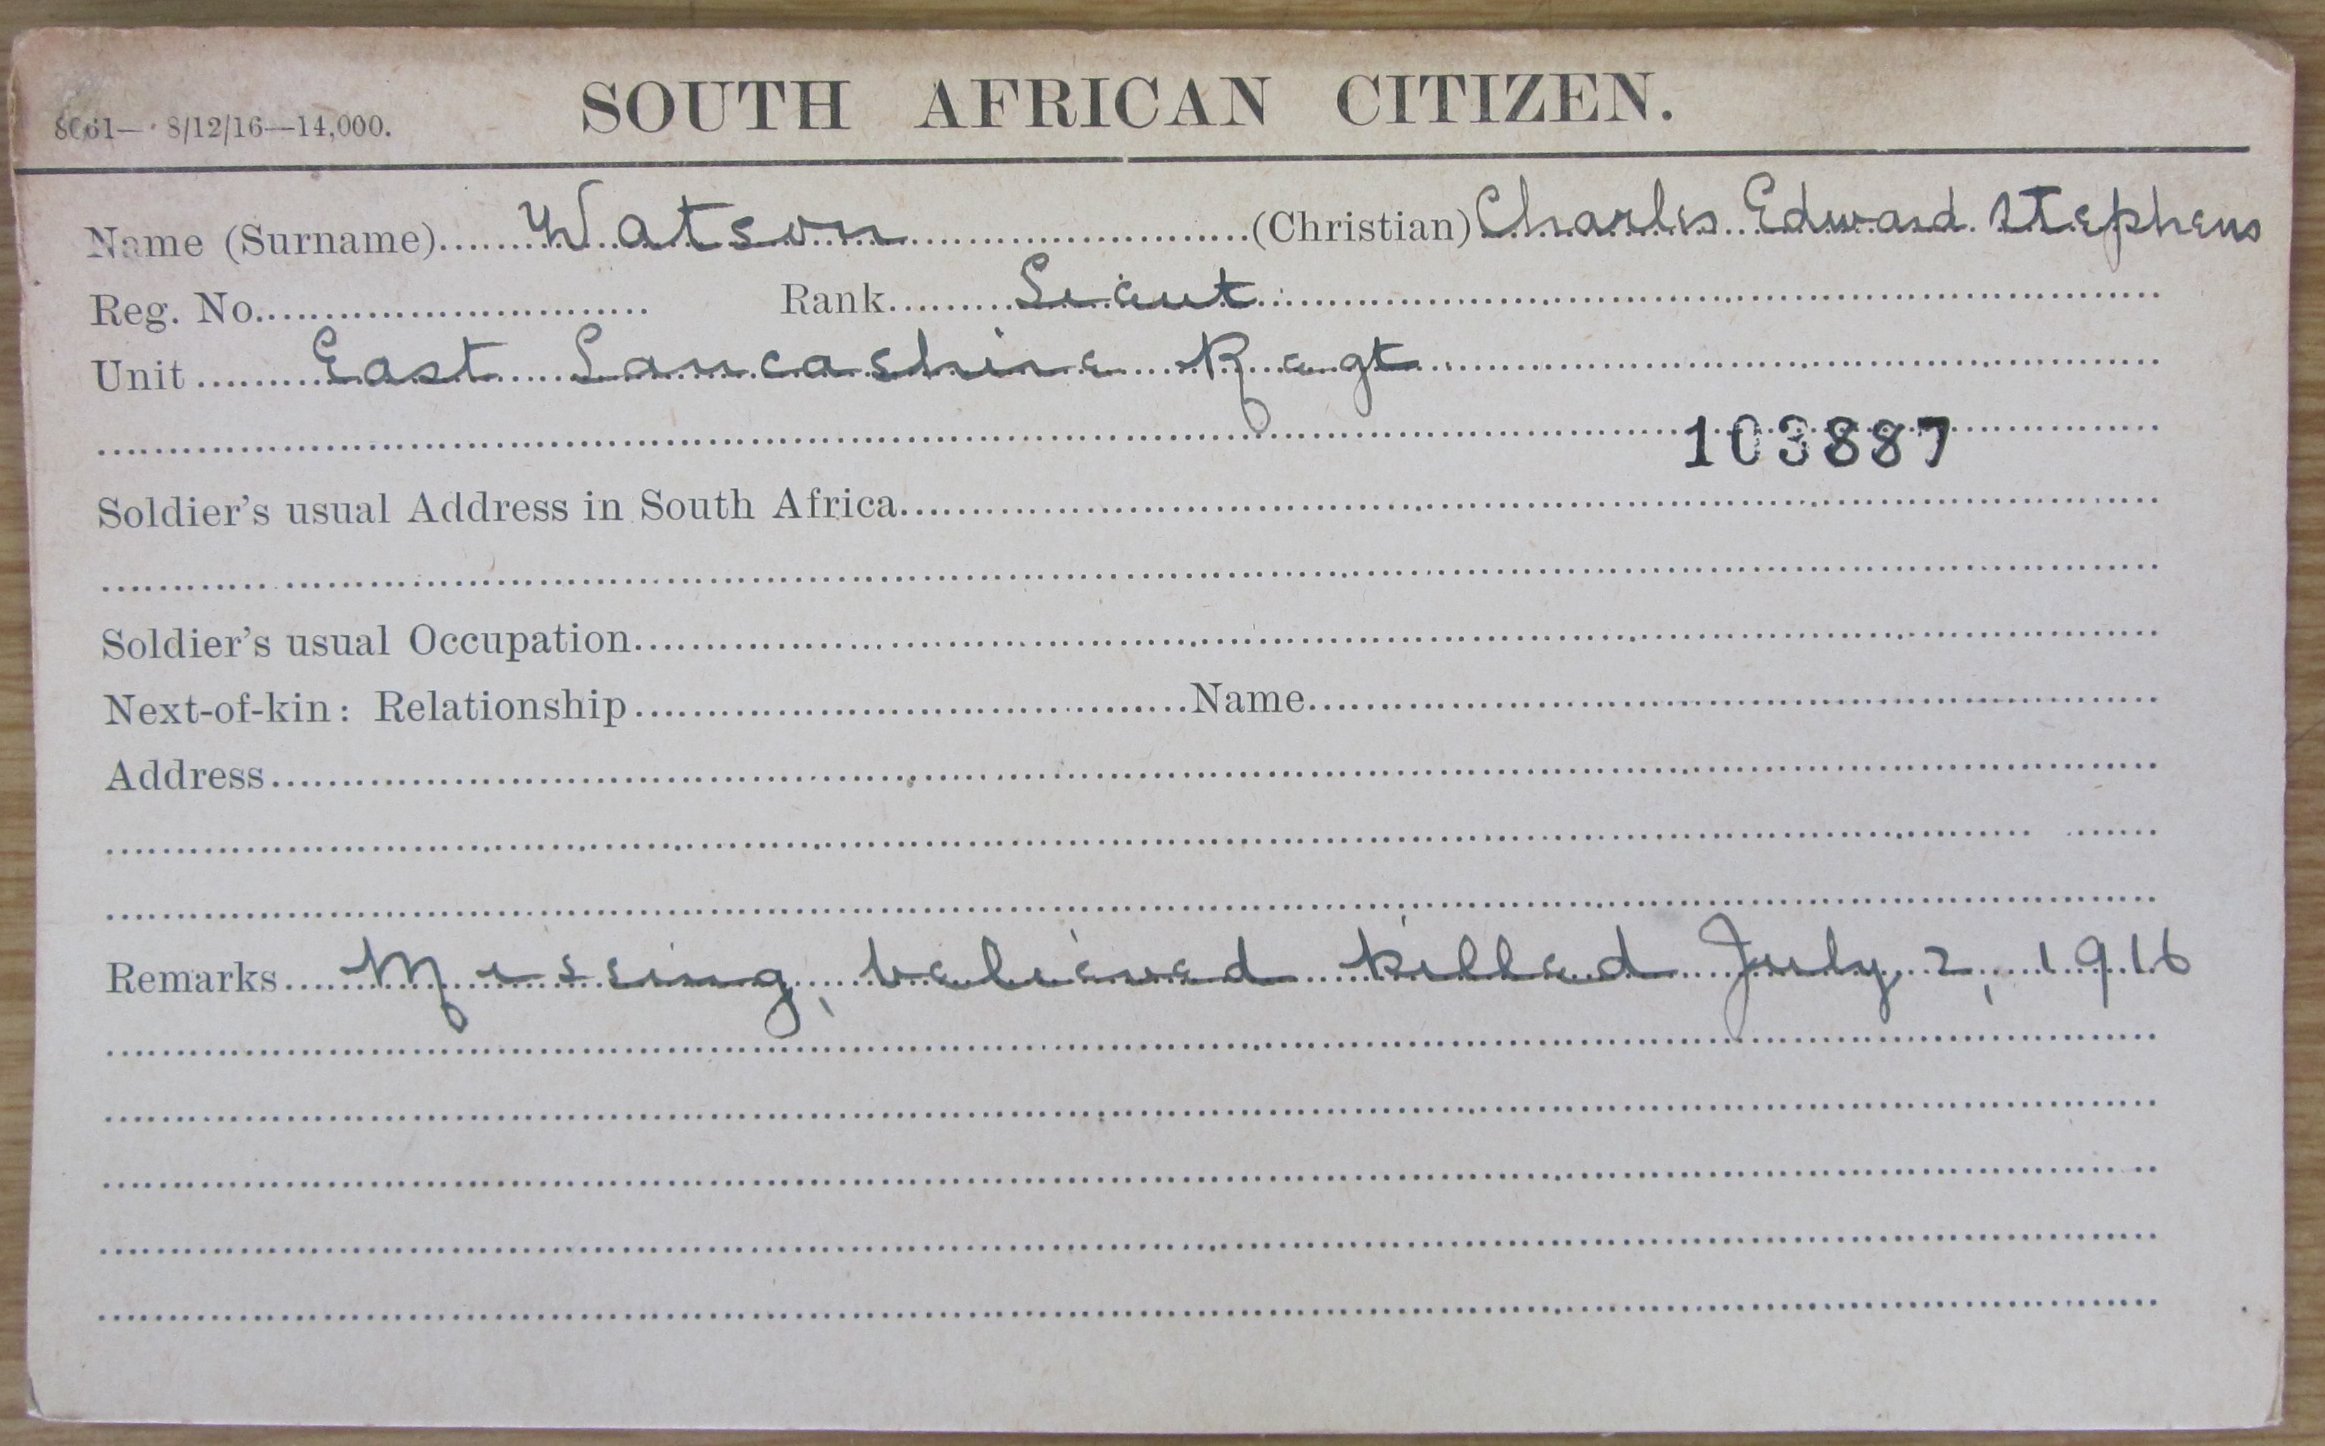 8061— 8/12/16—14,000.
SOUTH AFRICAN CITIZEN.
Name (Surname) Watson (Christian) Charles Edward Stephens
Reg. No. Rank Lieut
Unit East Lancashire Regt
103887
Soldier's usual Address in South Africa
Soldier's usual Occupation
Next-of-kin: Relationship Name
Address
Remarks Missing, believed killed July 2, 1916